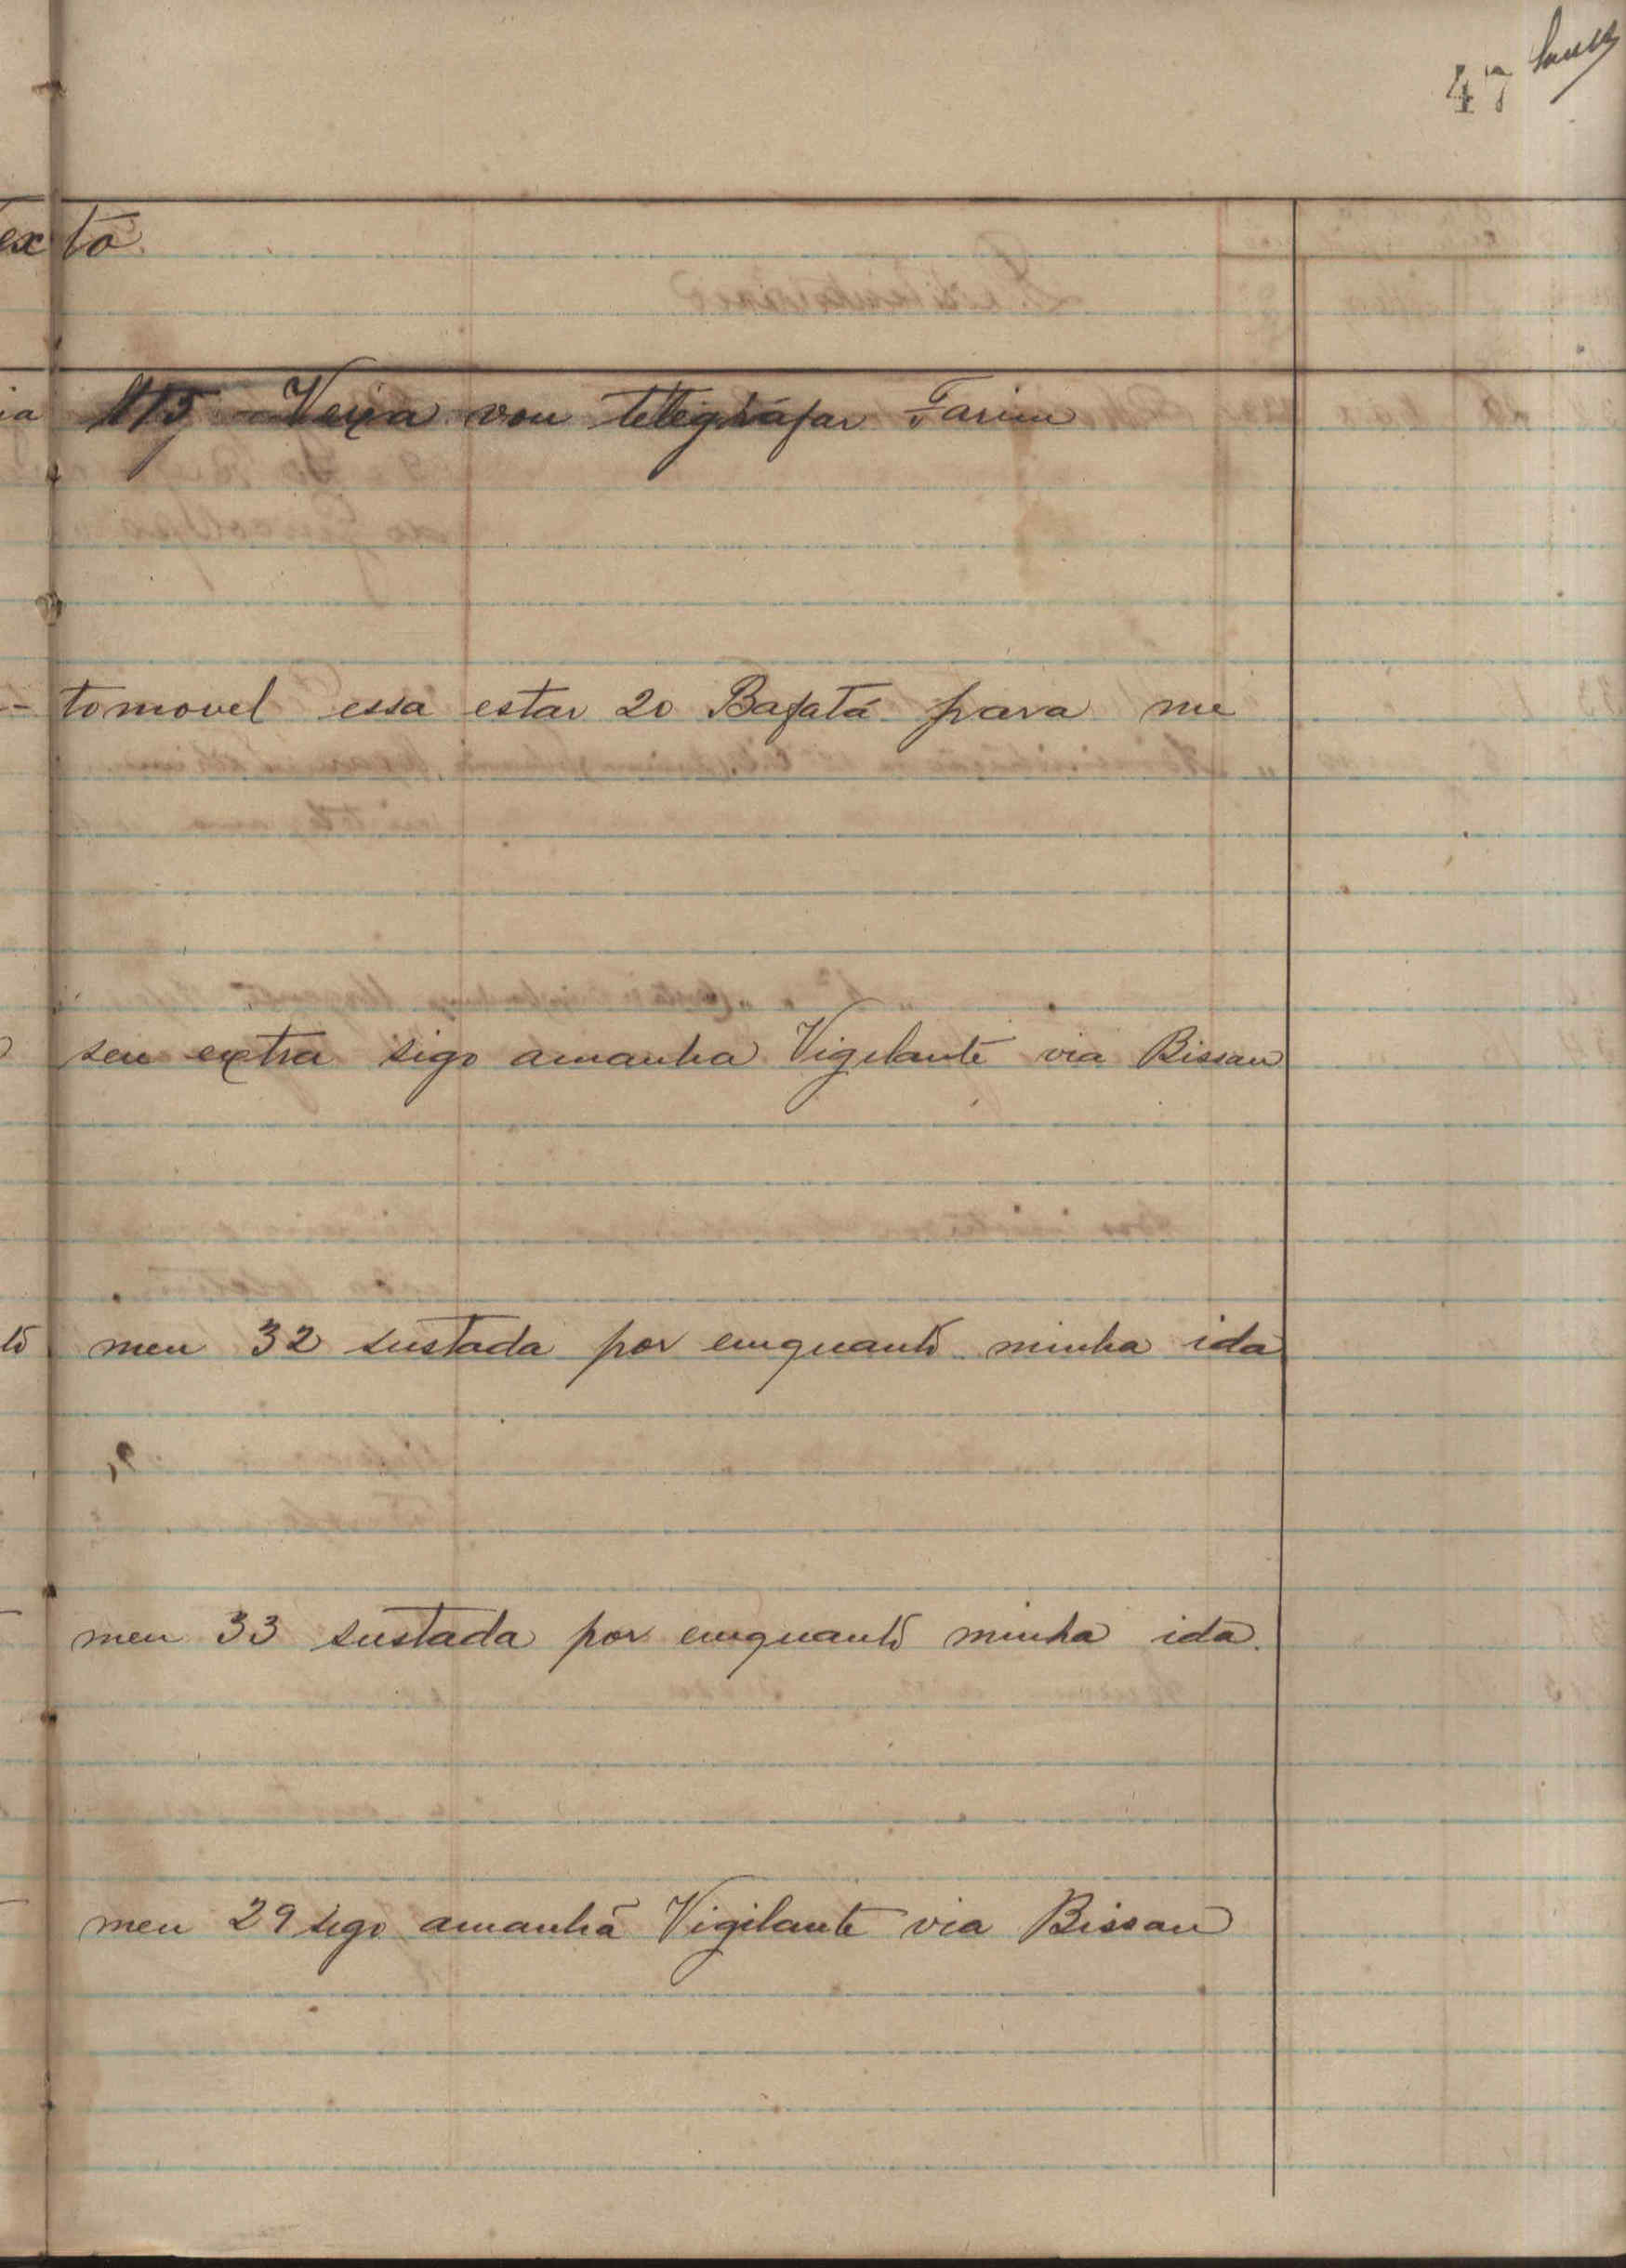 47
exto
ia 115 - Vexa vou telegráfar Farim
tomovel essa estar 20 Bafatá para me
seu extra sigo amanha Vigilante via Bissau
to meu 32 sustada por emquanto minha ida
meu 33 sustada por emquanto minha ida.
meu 29 sigo amanhã Vigilante via Bissau